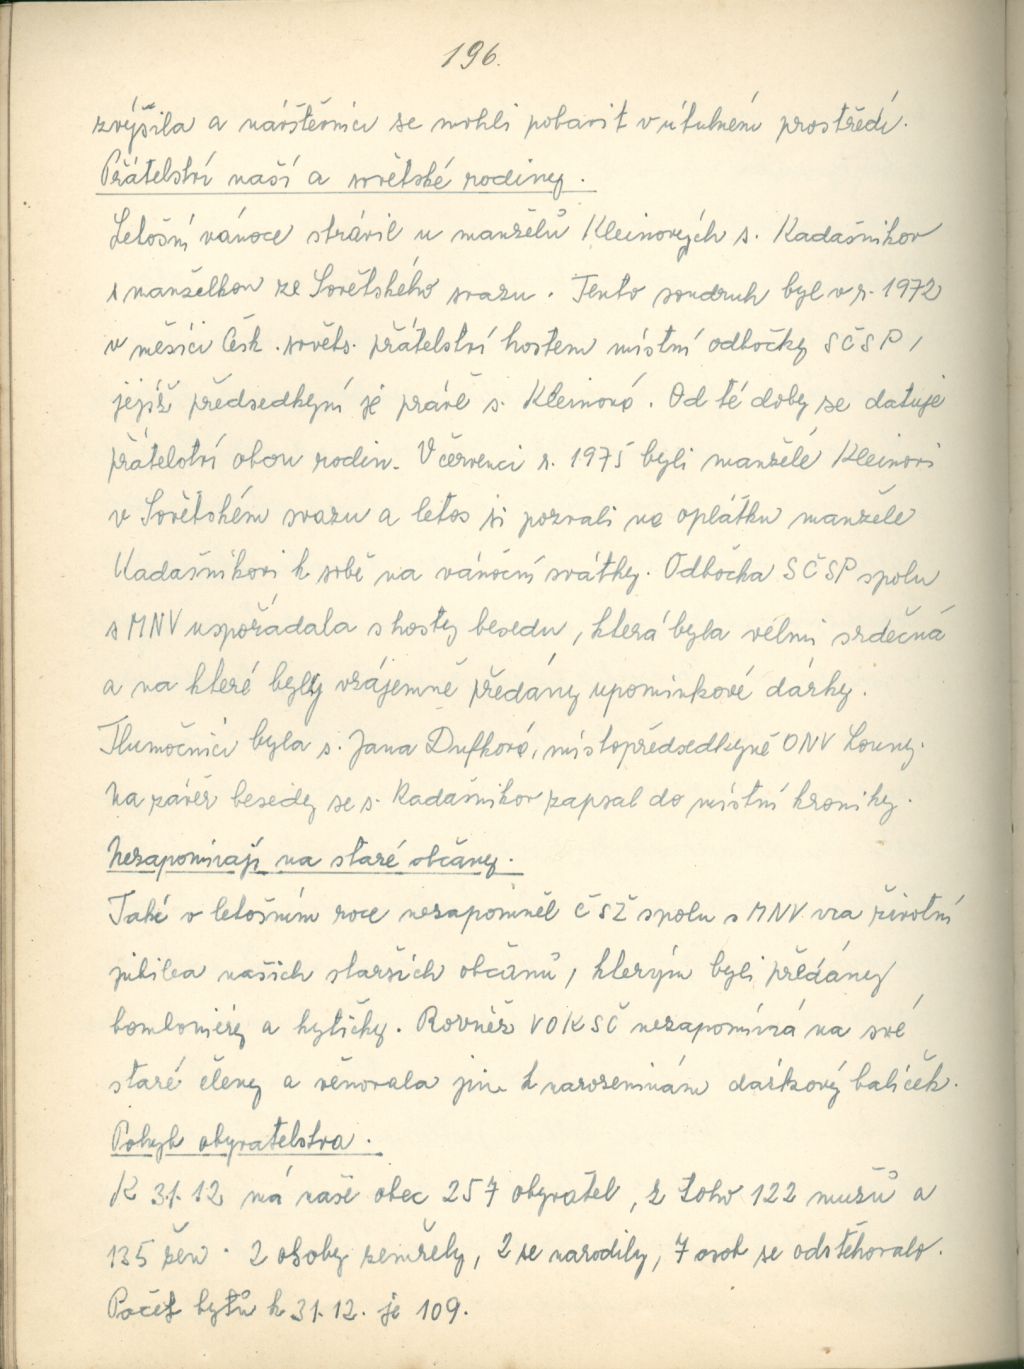 196.
zvýšila a návštěvníci se mohli pobavit v útulném prostředí.
Přátelství naší a sovětské rodiny.
Letošní vánoce strávil u manželů Kleinových s. Kadašnikov
s manželkou ze Sovětského svazu. Tento soudruh byl v r. 1972
v měsíci Česk. sověts. přátelství hostem místní odbočky SČSP,
jejíž předsedkyní je právě s. Kleinová. Od té doby se datuje
přátelství obou rodin. V červenci r. 1975 byli manželé Kleinovi
v Sovětském svazu a letos si pozvali na oplátku manžele
Kadašnikovi k sobě na vánoční svátky. Odbočka SČSP spolu
s MNV uspořádala s hosty besedu, která byla velmi srdečná
a na které byly vzájemně předány upomínkové dárky.
Tlumočnicí byla s. Jana Dufková, místopředsedkyně ONV Louny.
Na závěr besedy se s. Kadašnikov zapsal do místní kroniky.
Nezapomínají na staré občany.
Také v letošním roce nezapomněl ČSŽ spolu s MNV na životní
jubilea našich starších občanů, kterým byli předány
bomboniéry a kytičky. Rovněž VOKSČ nezapomíná na své
staré členy a věnovala jim k narozeninám dárkový balíček.
Pohyb obyvatelstva.
K 31.12 má naše obec 257 obyvatel, z toho 122 mužů a
135 žen. 2 osoby zemřely, 2 se narodily, 7 osob se odstěhovalo.
Počet bytů k 31.12. je 109.